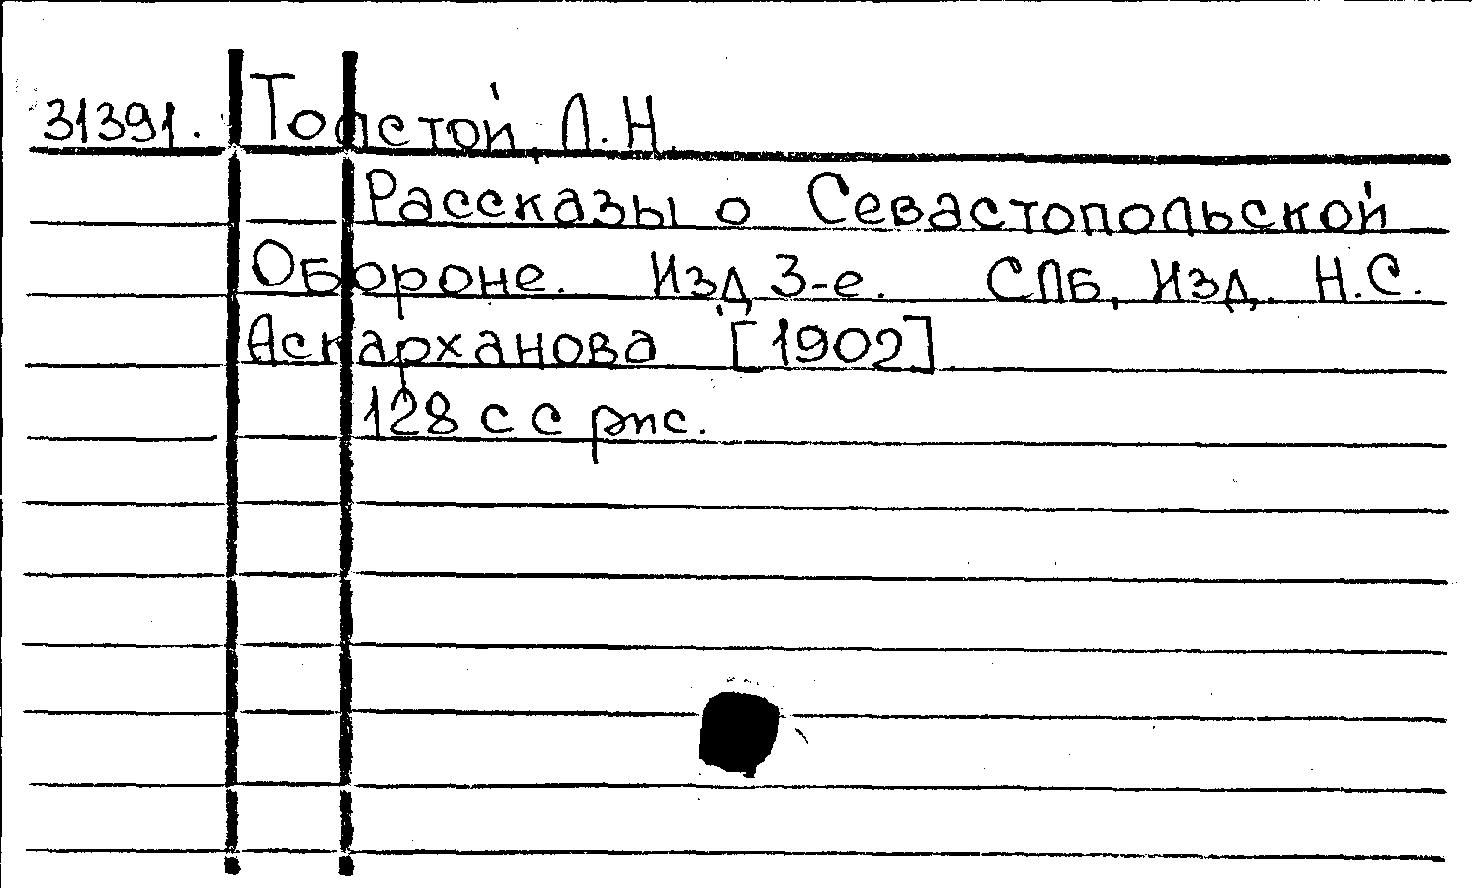 31391. Толстой, Л.Н.
Рассказы о Севастопольской
Обороне. Изд. 3-е. СПБ, Изд. Н.С.
Аскарханова [1902]
128 с с рис.